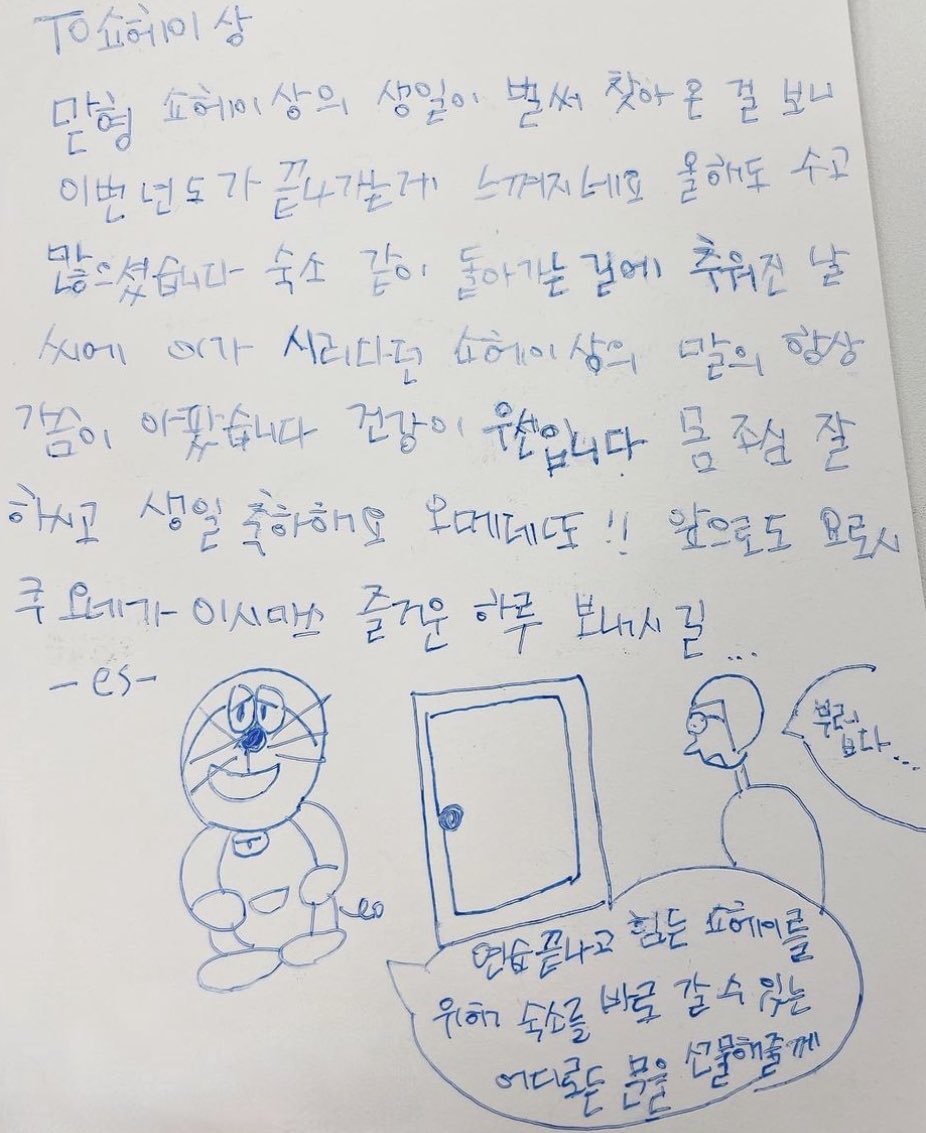 TO 쇼헤이 상
맏형 쇼헤이 상의 생일이 벌써 찾아 온 걸 보니
이번 년도가 끝나가는게 느껴지네요 올해도 수고
많으셨습니다 숙소 같이 돌아가는 길에 추워진 날
씨에 이가 시리다던 쇼헤이 상의 말의 항상
가슴이 아팠습니다 건강이 우선입니다 몸 조심 잘
하시고 생일 축하해요 오메데또!! 앞으로도 요로시
쿠 오네가이시마스 즐거운 하루 보내시길...
-es-
부럽
보다...
연습끝나고 힘든 쇼헤이를
위해 숙소를 바로 갈 수 있는
어디로든 문을 선물해줄게